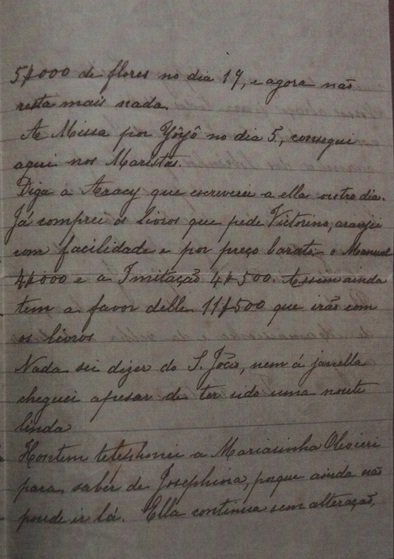 5$000 de flores no dia 19, e agora não
resta mais nada.
A Missa por Yôyô no dia 5, consegui
aqui nos Maristas.
Diga a Aracy que escreverei a ella outro dia.
Já comprei os livros que pede Victorino, arranjei
com facilidade e por preço barato o Manual
4$000 e a Imitação 4$500. Assim ainda
tem a favor delle 11$500 que irão com
os livros
Nada sei dizer do S. João, nem á janella
cheguei apesar de ter sido uma noute
linda
Hontem telephonei a Mariasinha
para saber de Josephina, porque ainda não
pude ir lá. Ella continua sem alteração,